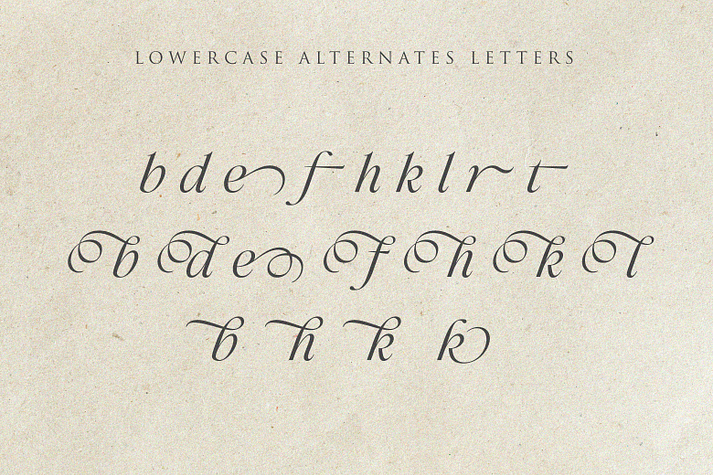 LOWERCASE ALTERNATES LETTERS
b d e f h k l r t
b d e f h k l
b h k k